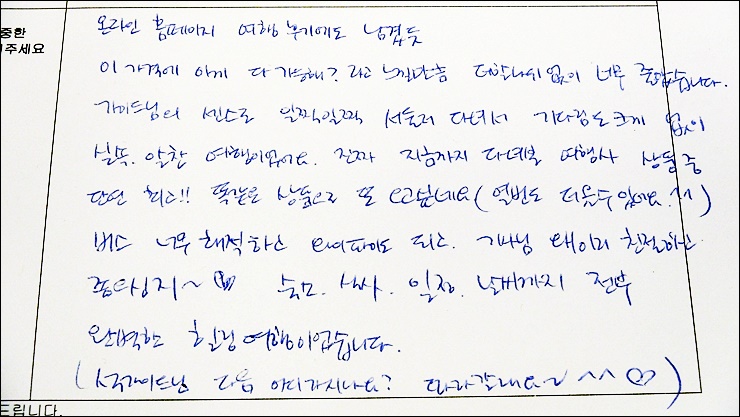 중한
주세요
온라인 홈페이지 여행 후기에도 남겼듯
이 가격에 이게 다 가능해? 라고 느낄만큼 더할나위없이 너무 좋았습니다.
가이드님의 센스로 일찍일찍 서둘러 다녀서 기다림도 크게 없이
실속. 알찬 여행이었어요. 진짜 지금까지 다녀본 여행사 상품 중
단연 최고!! 똑같은 상품으로 또 오고싶네요 (열번도 더올수있어요.^^)
버스 너무 쾌적하고 와이파이도 최고. 기사님 왜이리 친절하신
~♡ 숙소. 식사. 일정. 날씨까지 전부
완벽한 힐링여행이었습니다.
( 가이드님 다음 어디가시나요? 따라갈래요~ ^^ ♡ )
드립니다.